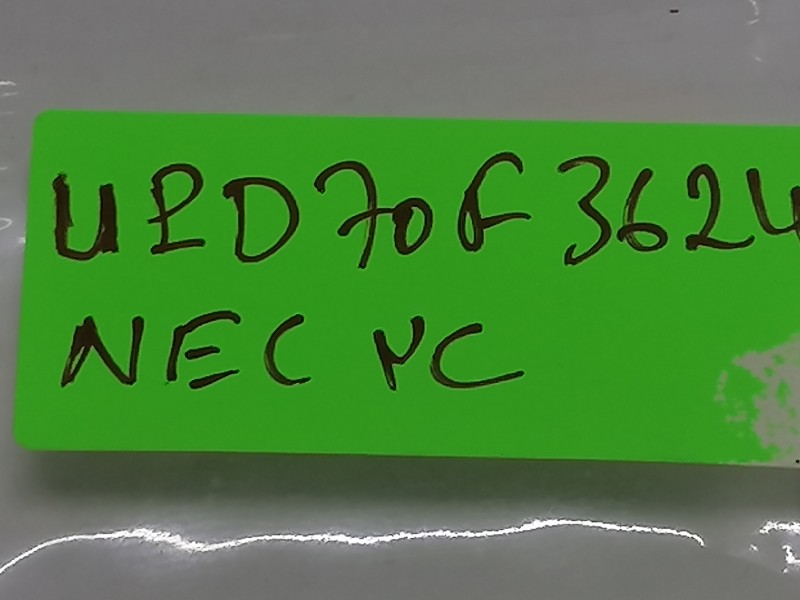 UPD70F3624
NEC µC